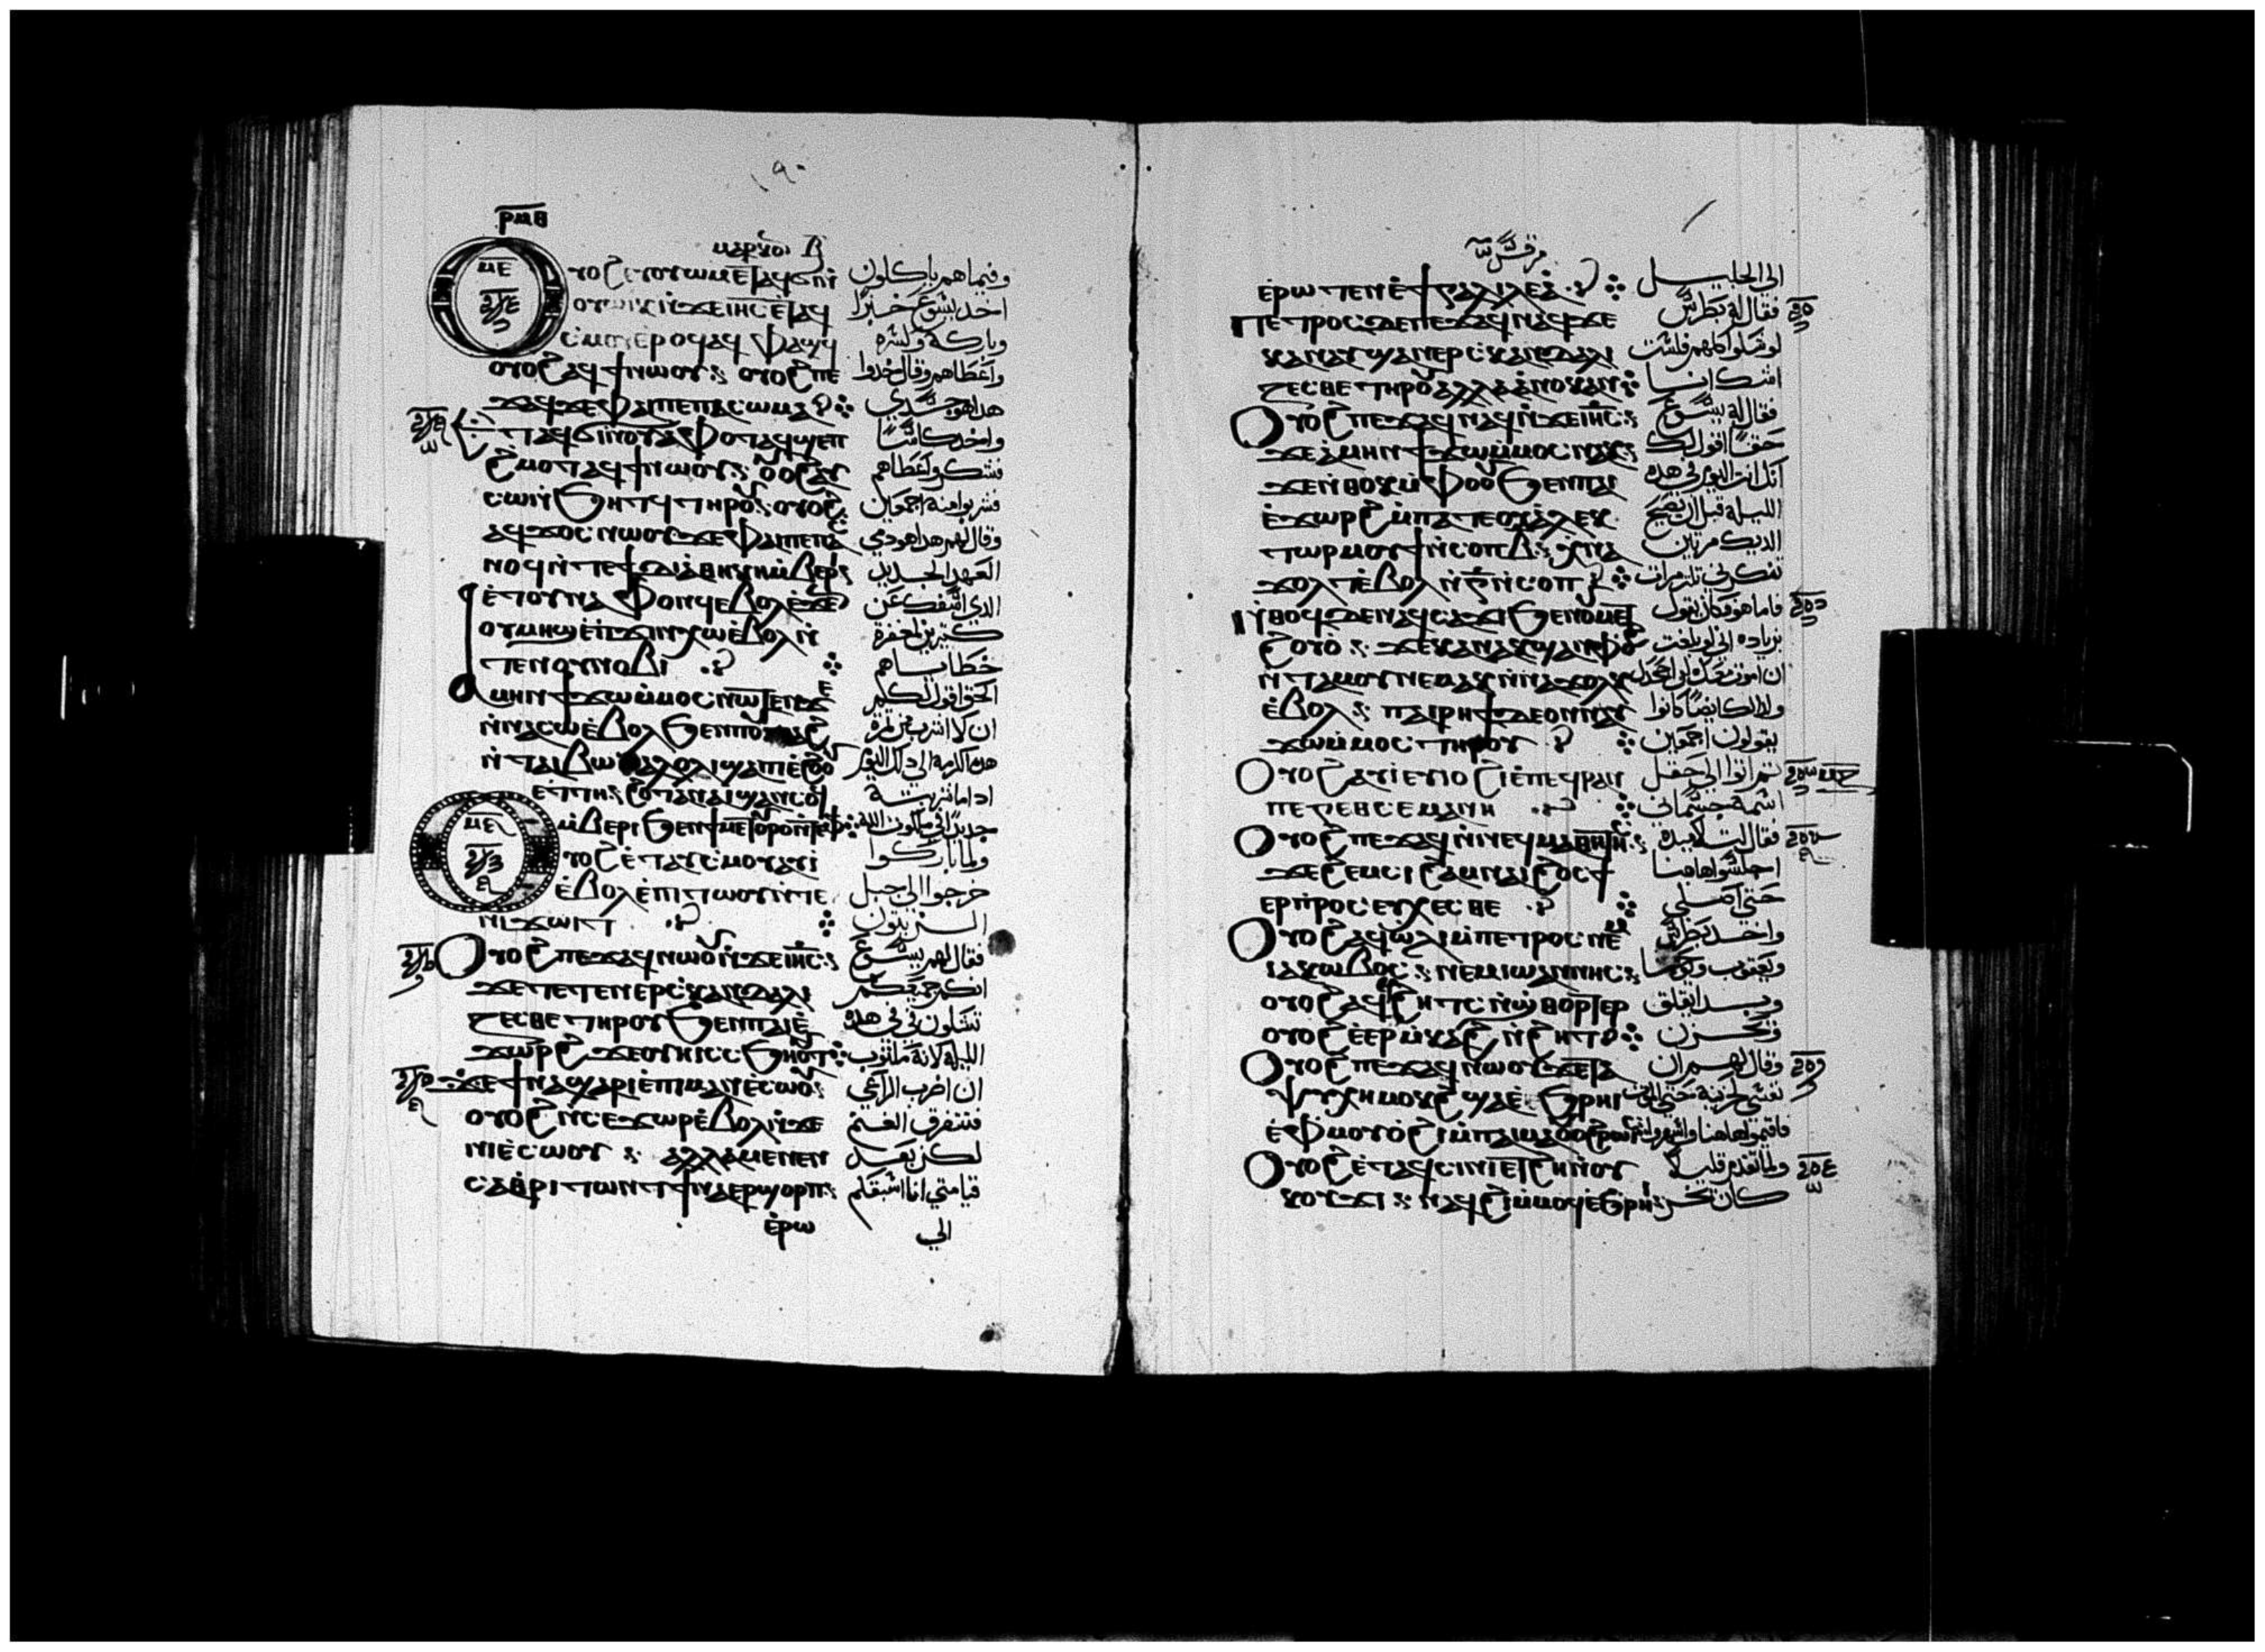 ⲣⲙⲑ
١٩٠
ⲙⲁⲣⲕⲟⲥ
ⲟⲩⲟϩ ⲉⲩⲟⲩⲱⲙ ⲉⲧⲁϥϭⲓ ⲛ̀ وفيما هم ياكلون
ⲟⲩⲱⲓⲕ ⲛ̀ϫⲉ ⲓⲏⲥ ⲉⲧⲁϥ اخد يسوع خبزا
ⲥⲙⲟⲩ ⲉ̀ⲣⲟϥ ⲁϥⲫⲁϣϥ وباركه وكسره
ⲟⲩⲟϩ ⲁϥϯ ⲛⲱⲟⲩ ⲟⲩⲟϩ ⲡⲉ واعطاهم وقال خدوا
ϫⲁϥ ϫⲉ ⲫⲁⲓ ⲡⲉ ⲡⲁⲥⲱⲙⲁ هدا هو جسدي
ⲉⲧⲁϥϭⲓ ⲛⲟⲩⲁⲫⲟⲧ ⲁϥϣⲉⲡ واخد كاسا
ϩ̀ⲙⲟⲧ ⲁϥϯ ⲛⲱⲟⲩ ⲟⲩⲟϩ ⲁⲩ فشكر واعطاهم
ⲥⲱ ⲛ̀ϧⲏⲧϥ ⲧⲏⲣⲟⲩ ⲟⲩⲟϩ فشربوا منه اجمعين
ⲁϥϫⲟⲥ ⲛⲱⲟⲩ ϫⲉ ⲫⲁⲓ ⲡⲉ ⲡⲁ وقال لهم هدا هو دمي
ⲥⲛⲟϥ ⲛ̀ⲧⲉ ϯⲇⲓⲁⲑⲏⲕⲏ ⲙ̀ⲃⲉⲣⲓ العهد الجديد
ⲉ̀ⲧⲟⲩⲛⲁⲫⲟⲛϥ ⲉⲃⲟⲗ ⲉ̀ϫⲉⲛ الدي اسفك عن
ⲟⲩⲙⲏϣ ⲉ̀ⲡϫⲓⲛⲭⲱ ⲉ̀ⲃⲟⲗ ⲛ̀ كتيرين لغفرة
ⲧⲉ ⲛⲟⲩⲛⲟⲃⲓ خطاياهم
ⲁⲙⲏⲛ ϯϫⲱ ⲙ̀ⲙⲟⲥ ⲛⲱⲧⲉⲛ ϫⲉ الحق اقول لكم
ⲛ̀ⲛⲁⲥⲱ ⲉ̀ⲃⲟⲗ ϧⲉⲛ ⲡⲟⲩⲧⲁϩ ان لا اشرب من تمرة
ⲛ̀ⲧⲁⲓⲃⲱ ⲛ̀ⲁⲗⲟⲗⲓ ϣⲁ ⲡⲓⲉ̀ϩⲟⲟⲩ هده الكرمة الى دلك اليوم
ⲉⲧⲧⲏ ϩⲟⲧⲁⲛ ⲁⲓϣⲁⲛⲥⲟϥ ادا ما شربته
ⲙ̀ⲃⲉⲣⲓ ϧⲉⲛ ϯⲙⲉⲧⲟⲩⲣⲟ ⲛ̀ⲧⲉ ⲫϯ جديدا في ملكوت الله
ⲟⲩⲟϩ ⲉ̀ⲧⲁⲩⲥⲙⲟⲩ ⲁⲩⲓ̀ ولما باركوا
ⲉ̀ⲃⲟⲗ ⲉ̀ⲡⲓⲧⲱⲟⲩ ⲛ̀ⲧⲉ خرجوا الى جبل
ⲛⲓϫⲱⲓⲧ الزيتون
ⲟⲩⲟϩ ⲡⲉϫⲁϥ ⲛⲱⲟⲩ ⲛ̀ϫⲉ ⲓⲏⲥ فقال لهم يسوع
ϫⲉ ⲧⲉⲧⲉⲛⲉⲣⲥ̀ⲕⲁⲛⲇⲁⲗⲓ انكم جميعكم
ⲍⲉⲥⲑⲉ ⲧⲏⲣⲟⲩ ϧⲉⲛ ⲡⲁⲓⲉ̀ تشكون في في هده
ϫⲱⲣϩ ϫⲉ ⲟⲩⲏⲓ ⲥ̀ⲥϧⲏⲟⲩⲧ الليله لانه مكتوب
ϫⲉ ϯⲛⲁϣⲁⲣⲓ ⲉ̀ⲡⲓⲙⲁⲛⲉ̀ⲥⲱⲟⲩ ان اضرب الراعي
ⲟⲩⲟϩ ⲛ̀ⲥⲉϫⲱⲣ ⲉ̀ⲃⲟⲗ ⲛ̀ϫⲉ فتتفرق الغنم
ⲛⲓⲉ̀ⲥⲱⲟⲩ ⲁⲗⲗⲁ ⲙⲉⲛⲉⲛ لكن بعد
ⲥⲁ ⲑⲣⲓⲧⲱⲛⲧ ϯⲛⲁⲉⲣϣⲟⲣⲡ قيامتي انا اسبقكم
ⲉ̀ⲣⲱ الي
مرقس
ⲉ̀ⲣⲱⲧⲉⲛ ⲉ̀ϯⲅⲁⲗⲓⲗⲉⲁ̀ الى الجليل
ⲡⲉⲧⲣⲟⲥ ⲇⲉ ⲡⲉϫⲁϥ ⲛⲁϥ ϫⲉ فقال له بطرس
ⲕⲁⲛ ⲁⲩϣⲁⲛⲉⲣⲥ̀ⲕⲁⲛⲇⲁⲗⲓ لو شكوا كلهم فلست
ⲍⲉⲥⲑⲉ ⲧⲏⲣⲟⲩ ⲁⲗⲗⲁ ⲁ̀ⲛⲟⲕ ⲁⲛ اشك انا
ⲟⲩⲟϩ ⲡⲉϫⲁϥ ⲛⲁϥ ⲛ̀ϫⲉ ⲓⲏⲥ فقال له يسوع
ϫⲉ ⲁ̀ⲙⲏⲛ ϯϫⲱ ⲙ̀ⲙⲟⲥ ⲛⲁⲕ حقا اقول لك
ϫⲉ ⲛ̀ⲑⲟⲕ ⲙ̀ⲫⲟⲟⲩ ϧⲉⲛ ⲡⲁⲓ انك انت اليوم في هده
ⲉ̀ϫⲱⲣϩ ⲙ̀ⲡⲁⲧⲉ ⲟⲩⲁ̀ⲗⲉⲕ الليلة قبل ان يصيح
ⲧⲱⲣ ⲙⲟⲩϯ ⲛ̀ⲥⲟⲡ ⲃ̅ ⲭ̀ⲛⲁ الديك مرتين
ϫⲟⲗⲧ ⲉ̀ⲃⲟⲗ ⲛ̀ⲅ̅ ⲛ̀ⲥⲟⲡ تنكرني تلت مرات
ⲛ̀ⲑⲟϥ ⲇⲉ ⲛⲁϥⲥⲁϫⲓ ϧⲉⲛ ⲟⲩⲙⲉⲧ فاما هو فكان يقول
ϩⲟⲩⲟ̀ ϫⲉ ⲕⲁⲛ ⲁⲥϣⲁⲛⲫⲟϩ بزياده اني لو بلغت
ⲛ̀ⲧⲁⲙⲟⲩ ⲛⲉⲙⲁⲕ ⲛ̀ⲛⲁϫⲟⲗⲕ ان اموت معك لن اجحدك
ⲉ̀ⲃⲟⲗ ⲡⲁⲓⲣⲏϯ ⲇⲉ ⲟⲛ ⲛⲁⲩ وكدلك ايضا كانوا
ϫⲱ ⲙ̀ⲙⲟⲥ ⲧⲏⲣⲟⲩ يقولون اجمعين
ⲟⲩⲟϩ ⲁⲩⲓ̀ ⲉⲩⲓⲟϩⲓ ⲉ̀ⲡⲉϥⲣⲁⲛ تم اتوا الى حقل
ⲡⲉ ⲅⲉⲑⲥⲉⲙⲁⲛⲏ اسمه جسماني
ⲟⲩⲟϩ ⲡⲉϫⲁϥ ⲛ̀ⲛⲉϥⲙⲁⲑⲏⲧⲏⲥ فقال لتلاميده
ϫⲉ ϩⲉⲙⲥⲓ ⲙ̀ⲛⲁⲓ ϩⲟⲥ ϯ اجلسوا هاهنا
ⲉⲣⲡⲣⲟⲥⲉⲩⲭⲉⲥⲑⲉ حتى اصلي
ⲟⲩⲟϩ ⲁϥⲱ̀ⲗⲓ ⲙ̀ⲡⲉⲧⲣⲟⲥ ⲛⲉⲙ واخد بطرس
ⲓⲁⲕⲱⲃⲟⲥ ⲛⲉⲙ ⲓⲱⲁⲛⲛⲏⲥ ويعقوب ويوحنا
ⲟⲩⲟϩ ⲁϥⲉⲣϩⲏⲧⲥ ⲛ̀ϣ̀ⲑⲟⲣⲧⲉⲣ وبدا يقلق
ⲟⲩⲟϩ ⲉ̀ⲉⲣⲙ̀ⲕⲁϩ ⲛ̀ϩⲏⲧ ويحزن
ⲟⲩⲟϩ ⲡⲉϫⲁϥ ⲛⲱⲟⲩ ϫⲉ ⲧⲁ وقال لهم ان
ⲯⲩⲭⲏ ⲙⲟⲕϩ ϣⲁ ⲉ̀ϧⲣⲏⲓ نفسي حزينة حتى الموت
ⲉ̀ⲫⲙⲟⲩ ⲟ̀ϩⲓ ⲙ̀ⲡⲁⲓⲙⲁ ⲟⲩⲟϩ ⲣⲱⲓⲥ فاقيموا هاهنا واسهروا
ⲟⲩⲟϩ ⲉ̀ⲧⲁϥⲥⲓⲛⲓ ⲉⲧϩⲏ ⲛ̀ⲟⲩ ولما تقدم قليلا
ⲕⲟⲩϫⲓ ⲛⲁϥϩⲓ ⲙ̀ⲙⲟϥ ⲉ̀ϧⲣⲏⲓ كان يخر